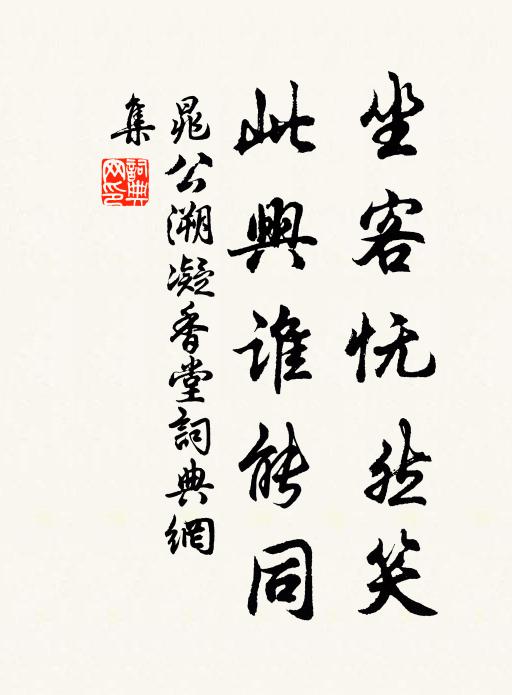 坐客怃然笑
此興誰能同
晁公溯凝香堂詞典網
集
詞典网印